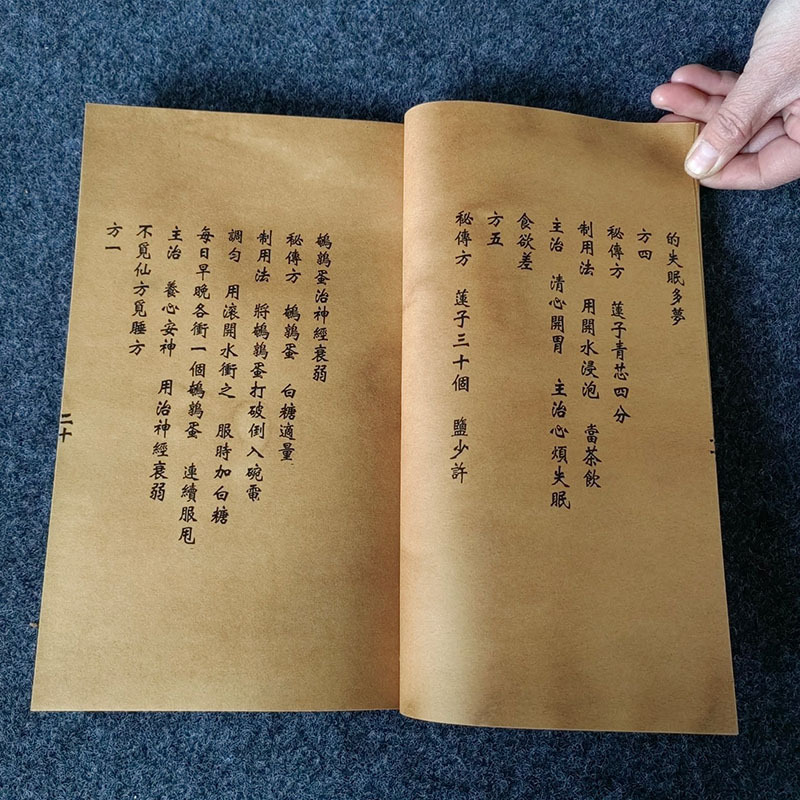 的失眠多夢
方四
秘傳方 蓮子青芯四分
制用法 用開水浸泡 當茶飲
主治 清心開胃 主治心煩失眠
食欲差
方五
秘傳方 蓮子三十個 鹽少許
鵪鶉蛋治神經衰弱
秘傳方 鵪鶉蛋 白糖適量
制用法 將鵪鶉蛋打破倒入碗電
調勻 用滾開水衝之 服時加白糖
每日早晚各衝一個鵪鶉蛋 連續服用
主治 養心安神 用治神經衰弱
不覓仙方覓睡方
方一
二十